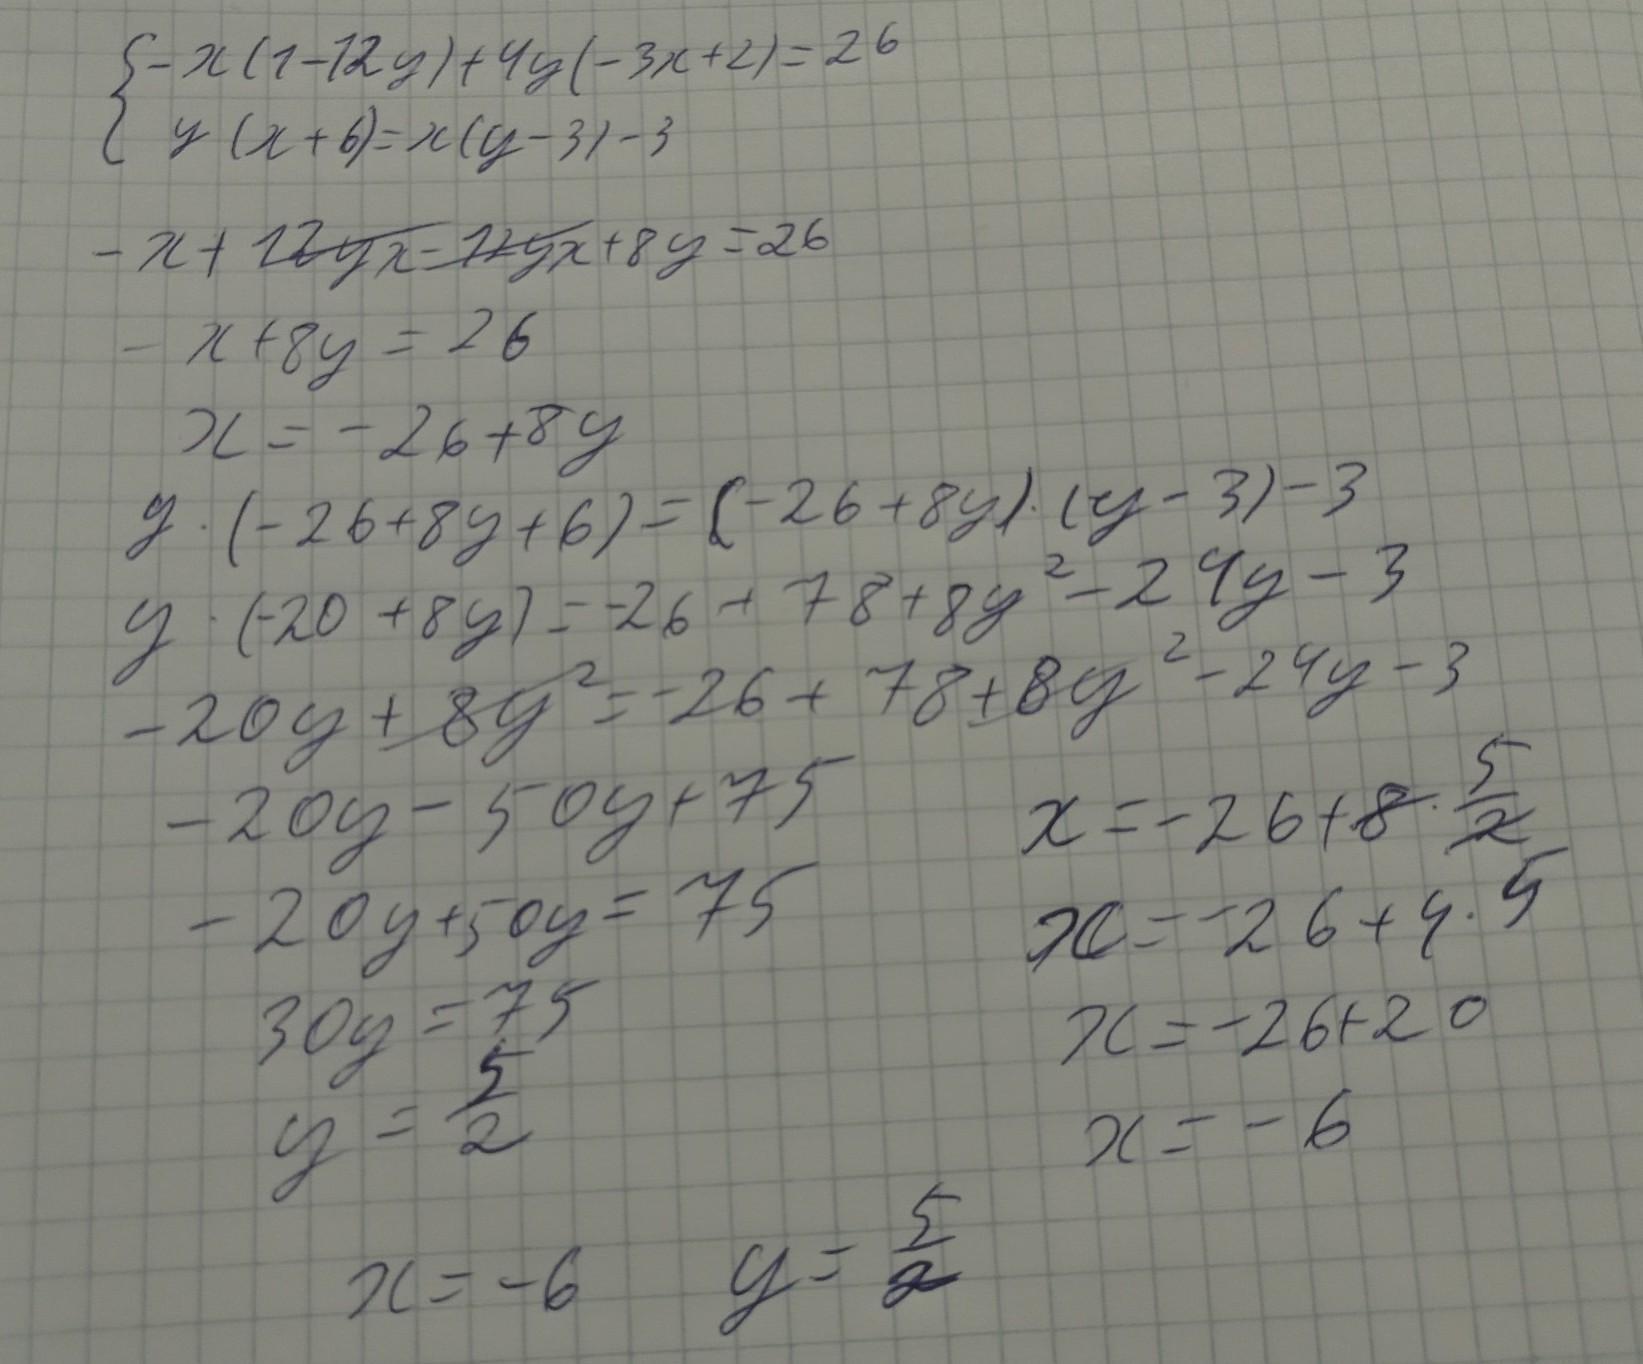 {-x(1-12y)+4y(-3x+2)=26
y(x+6)=x(y-3)-3
-x+12yx-12yx+8y=26
-x+8y=26
x=-26+8y
y·(-26+8y+6)=(-26+8y)·(y-3)-3
y·(-20+8y)=-26+78+8y²-24y-3
-20y+8y²=-26+78+8y²-24y-3
-20y-50y+75
-20y+50y=75
30y=75
y=5/2
x=-26+8·5/2
x=-26+4·5
x=-26+20
x=-6
x=-6 y=5/2